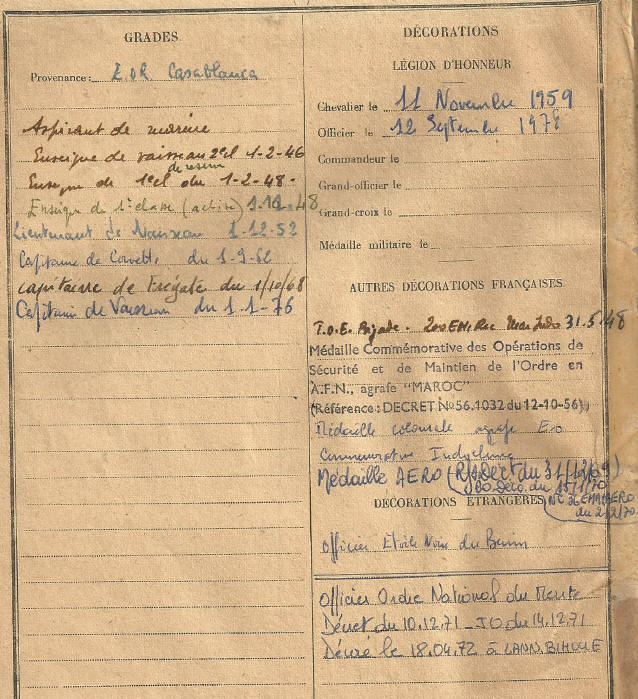 GRADES
Provenance: E.O.R Casablanca
Aspirant de marine
Enseigne de vaisseau 2ecl 1-2-46
de réserve
Enseigne de 1ecl du 1-2-48.
Enseigne de 1e classe (active) 48
Lieutenant de Vaisseau 1-12-52
Capitaine de Corvette du 1-9-62
Capitaine de Frégate du 1/10/68
Capitaine de Vaisseau du 1-1-76
DÉCORATIONS
LÉGION D'HONNEUR
Chevalier le 11 Novembre 1959
Officier le 12 Septembre 1978
Commandeur le
Grand-officier le
Grand-croix le
Médaille militaire le
AUTRES DÉCORATIONS FRANÇAISES
T.O.E. Brigade. 31.5.48
Médaille Commémorative des Opérations de
Sécurité et de Maintien de l'Ordre en
A.F.N., agrafe "MAROC"
(Référence: DECRET No 56.1032 du 12-10-56)
Médaille coloniale agrafe E.O
Commemorative Indochine
Médaille AERO (Déc du 31/12/69)
JO. Déco. du 15/1/70
DÉCORATIONS ÉTRANGÈRES
du 2/2/70
Officier Etoile Noire du Benin
Officier Ordre National du Mérite
Décret du 10.12.71 - JO du 14.12.71
Décoré le 18.04.72 à LANN.BIHOUE